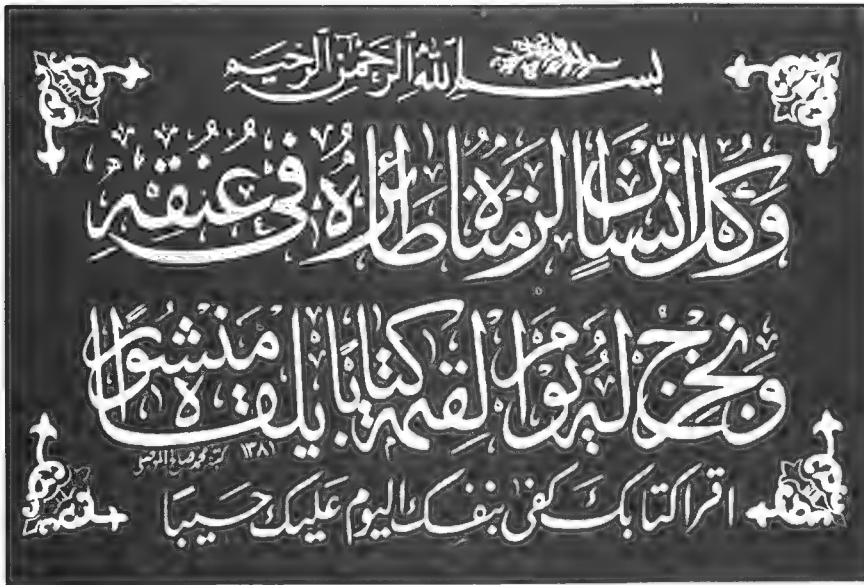 بسم الله الرحمن الرحيم
وَكُلَّ اِنْسَانٍ اَلْزَمْنَاهُ طَائِرَهُ فِى عُنُقِهِ
وَنُخْرِجُ لَهُ يَوْمَ الْقِيٰمَةِ كِتَابًا يَلْقَاهُ مَنْشُورًا
كتبه محمد صالح الموصلي ١٣٨١
اقرا كتابك كفى بنفسك اليوم عليك حسيبا